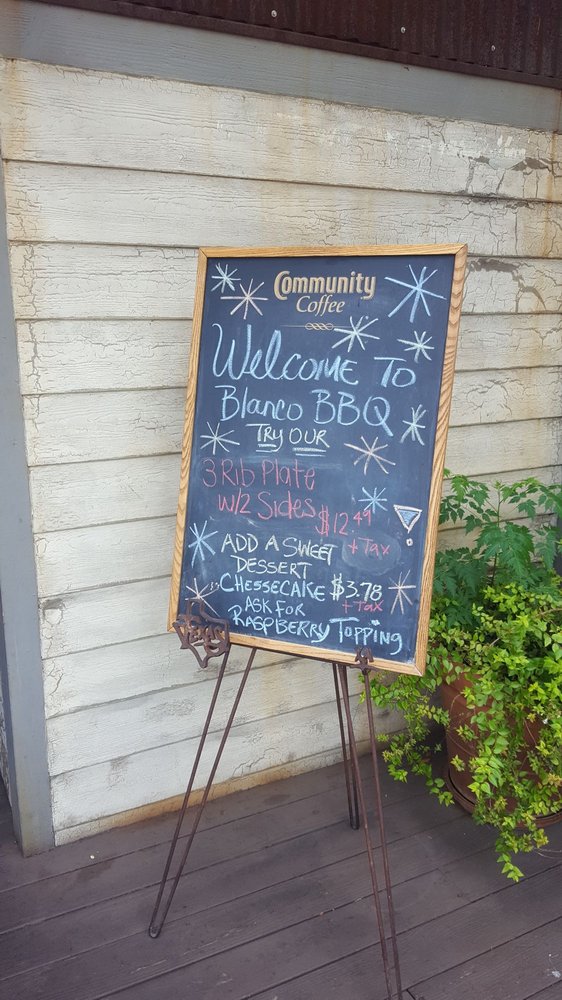 Community
Coffee
Welcome To
Blanco BBQ
Try Our
3 Rib Plate
w/2 Sides $12.49
+ Tax
ADD A SWEET
DESSERT
CHESSECAKE $3.78
+ Tax
ASK FOR
RASPBERRY Topping
TEXAS